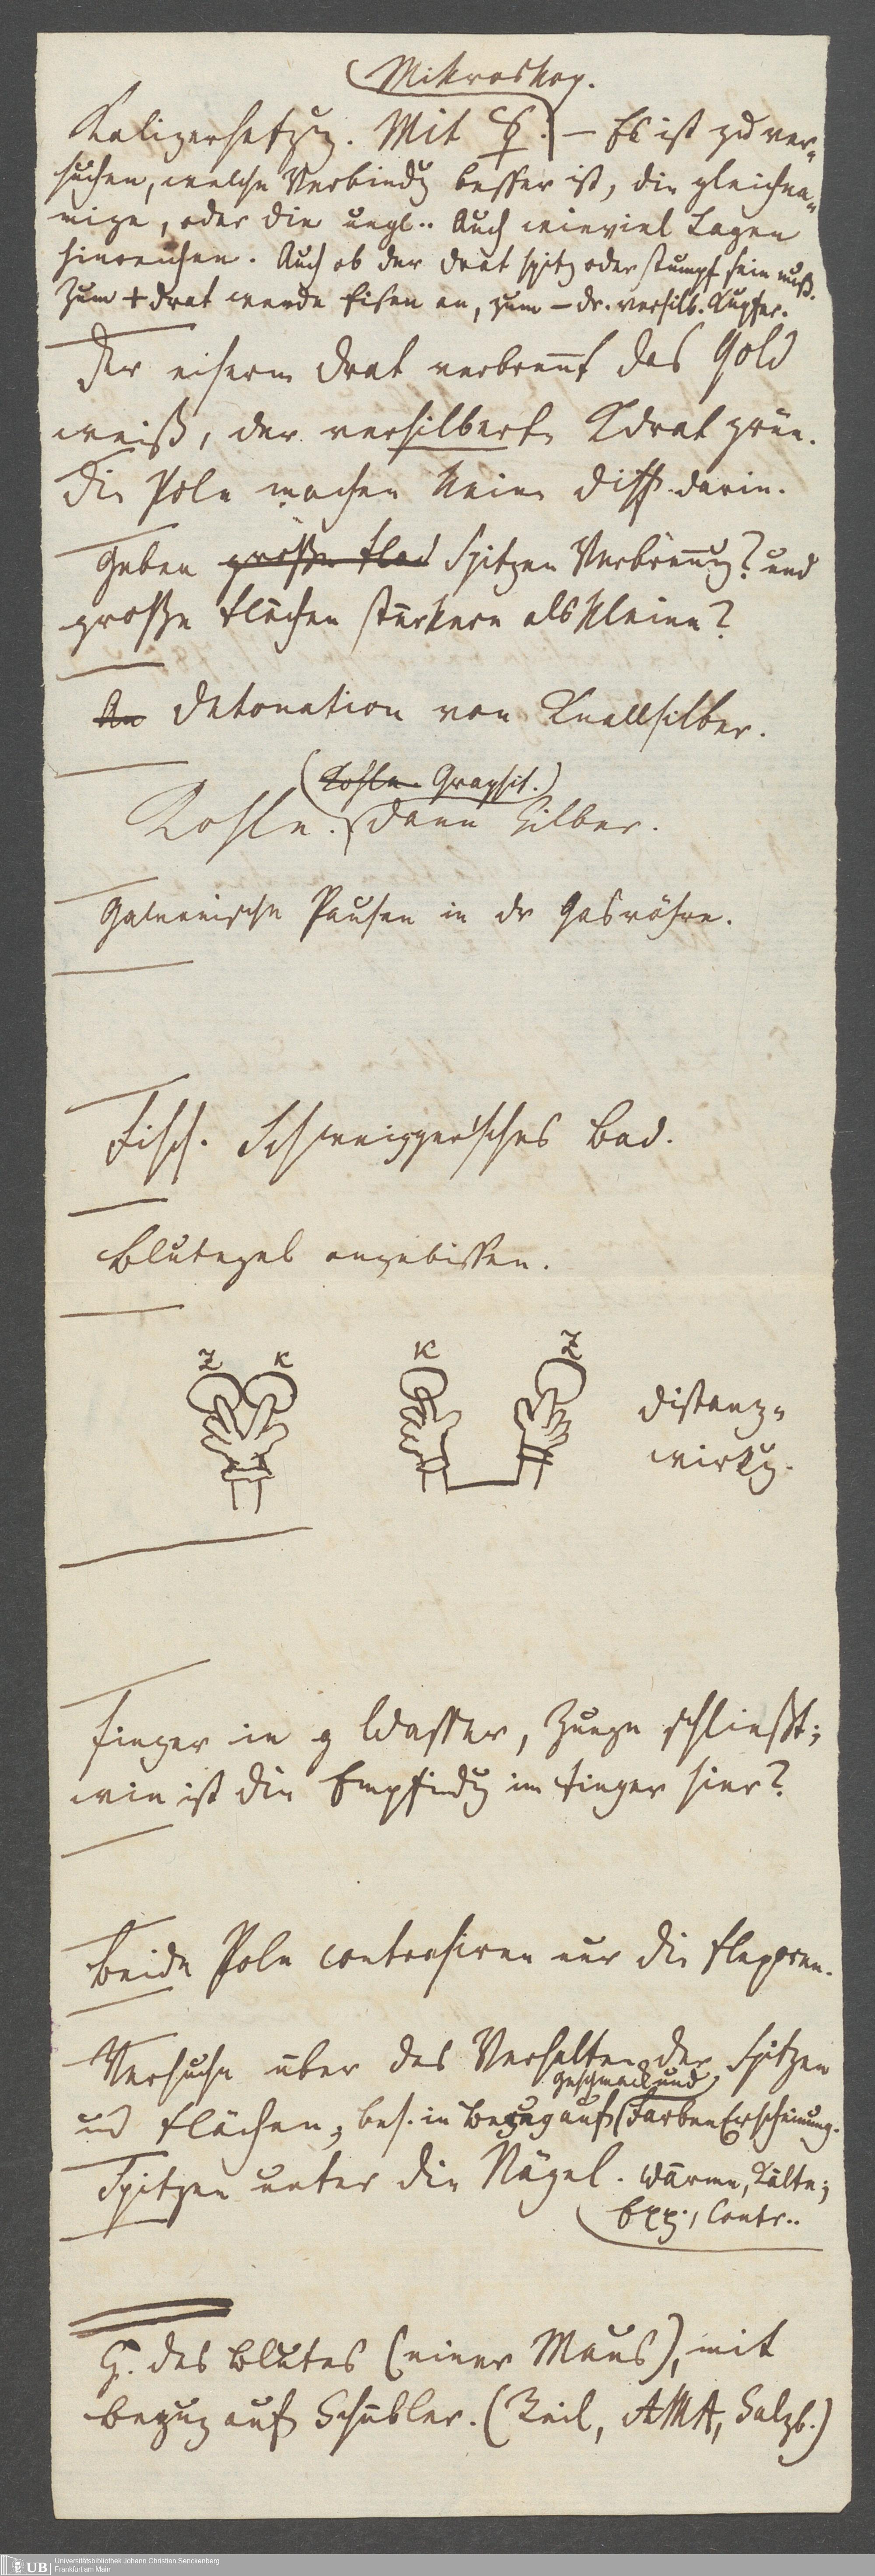 Mikroskop.
Kalizersetzung. Mit ☿. — Es ist zu ver-
suchen, welche Verbindung besser ist, die gleichna-
mige, oder die ungl.. Auch wieviel Lagen
hinreichen. Auch ob der Drat spitz oder stumpf sein muß.
Zum + Drat wende Eisen an, zum – Dr. versilb. Kupfer.
Der eiserne Drat verbrennt das Gold
weiß, der versilberte Kdrat grün.
Die Pole machen keine Diff. darin.
Geben große Spitzen Verbrennung? und
große Flächen stärkere als kleine?
An Detonation von Knallsilber.
(Kohle. Graphit.)
Kohle. dann Silber.
Galvanische Pausen in dr Gasröhre.
Fisch. Schweigger'sches Bad.
Blutegel angebissen.
Z K K Z
Distanz-
wirkung.
Finger in Wasser, Zunge schließt;
wie ist die Empfindung im Finger hier?
Beide Pole contrahiren nur die Flexoren.
Versuche über das Verhalten der Spitzen
Geschmack und
und Flächen, bes. in Bezug auf Farben Erscheinung.
Spitzen unter die Nägel. Wärme, Kälte;
Exp., Contr..
G. des Blutes (einer Maus), mit
Bezug auf Schübler. (Reil, AMA, Salzb.)
UB Universitätsbibliothek Johann Christian Senckenberg
Frankfurt am Main